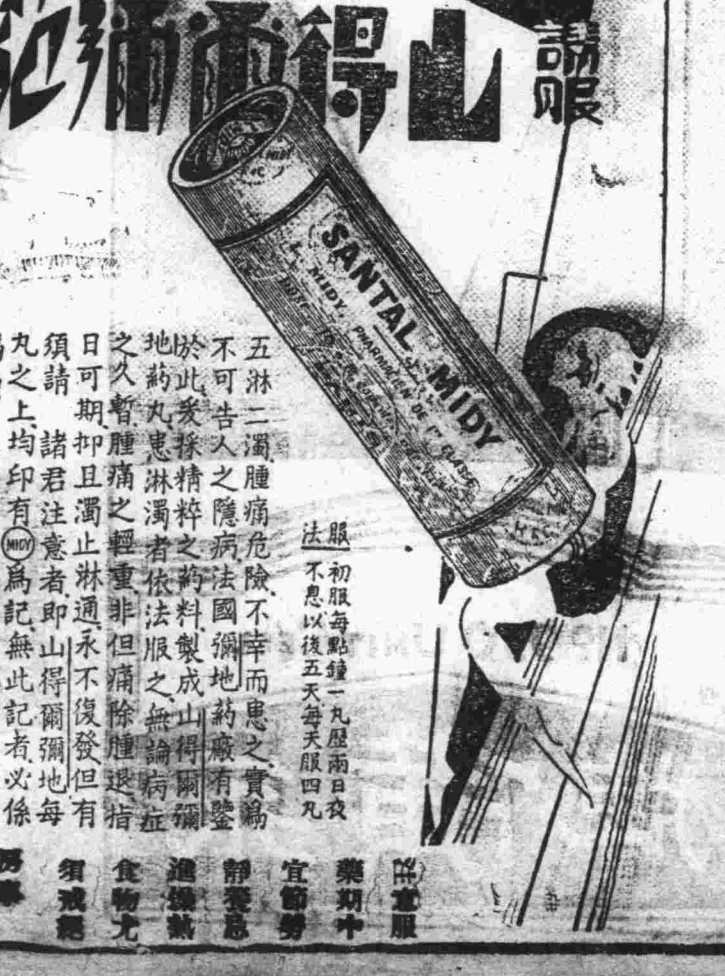 請服
山得爾彌
SANTAL MIDY
MIDY, PHARMACIEN DE 1re CLASSE
服法
初服每點鐘一丸歷兩日夜
不息以後五天每天服四丸
五淋二濁腫痛危險、不幸而患之、實爲
不可告人之隱病法國彌地葯廠有鑒
於此、爰採精粹之葯料製成山得爾彌
地葯丸患淋濁者依法服之、無論病症
之久暫、腫痛之輕重、非但痛除腫退、指
日可期、抑且濁止淋通、永不復發但有
須請 諸君注意者、即山得爾彌地每
丸之上、均印有MIDY爲記、無此記者必係
注意服
藥期中
宜節勞
靜養忌
進燥熱
食物尤
須戒絕
房事